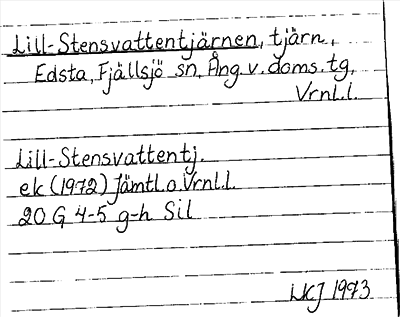 Lill-Stensvattentjärnen, tjärn,
Edsta, Fjällsjö sn, Ång.v.doms.tg,
Vrnl.l.
Lill-Stensvattentj.
ek (1972) Jämtl.o.Vrnl.l.
20 G 4-5 g-h Sil
LKJ 1973